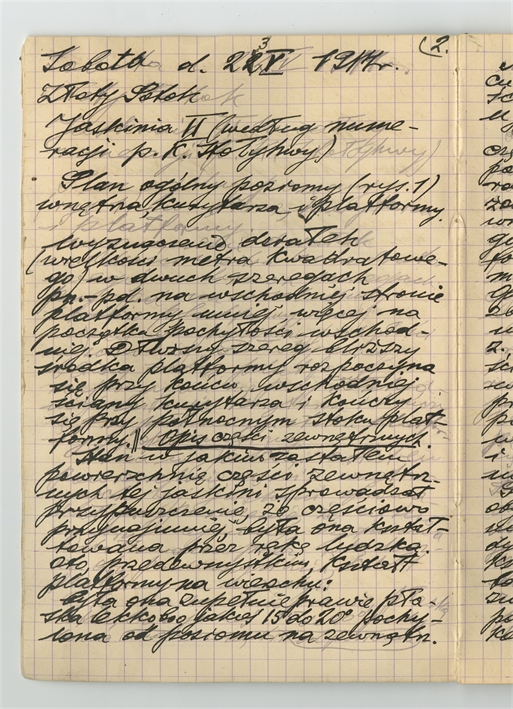 (2.
Sobota d. 23 V 1914r.
Złoty Potok
Jaskinia II (według nume-
racji p. K. Hołyńwy)
Plan ogólny poziomy (rys. 1)
wnętrza, kurytarza i platformy.
Wyznaczenie działek
(wielkości metra kwadratowe-
go) w dwuch szeregach
pn.-pd. na wschodniej stronie
platformy mniej więcej na
początku pochyłości wschod-
niej. szereg bliższy
środka platformy rozpoczyna
się przy końcu wschodniej
ściany kurytarza i kończy
się przy północnym stoku plat-
formy. || Opis części zewnętrznych.
Stan w jakim zastałem
powierzchnię części zewnętrz-
nych tej jaskini sprowadzał
przypuszczenie, że częściowo
przynajmniej była ona kształ-
towana przez rękę ludzką.
oto przedewszystkim, kształt
platformy na wierzchu:
była ona zupełnie prawie pła-
ska lekko bo jakieś 15 do 20° pochy-
lona od poziomu na zewnątrz.